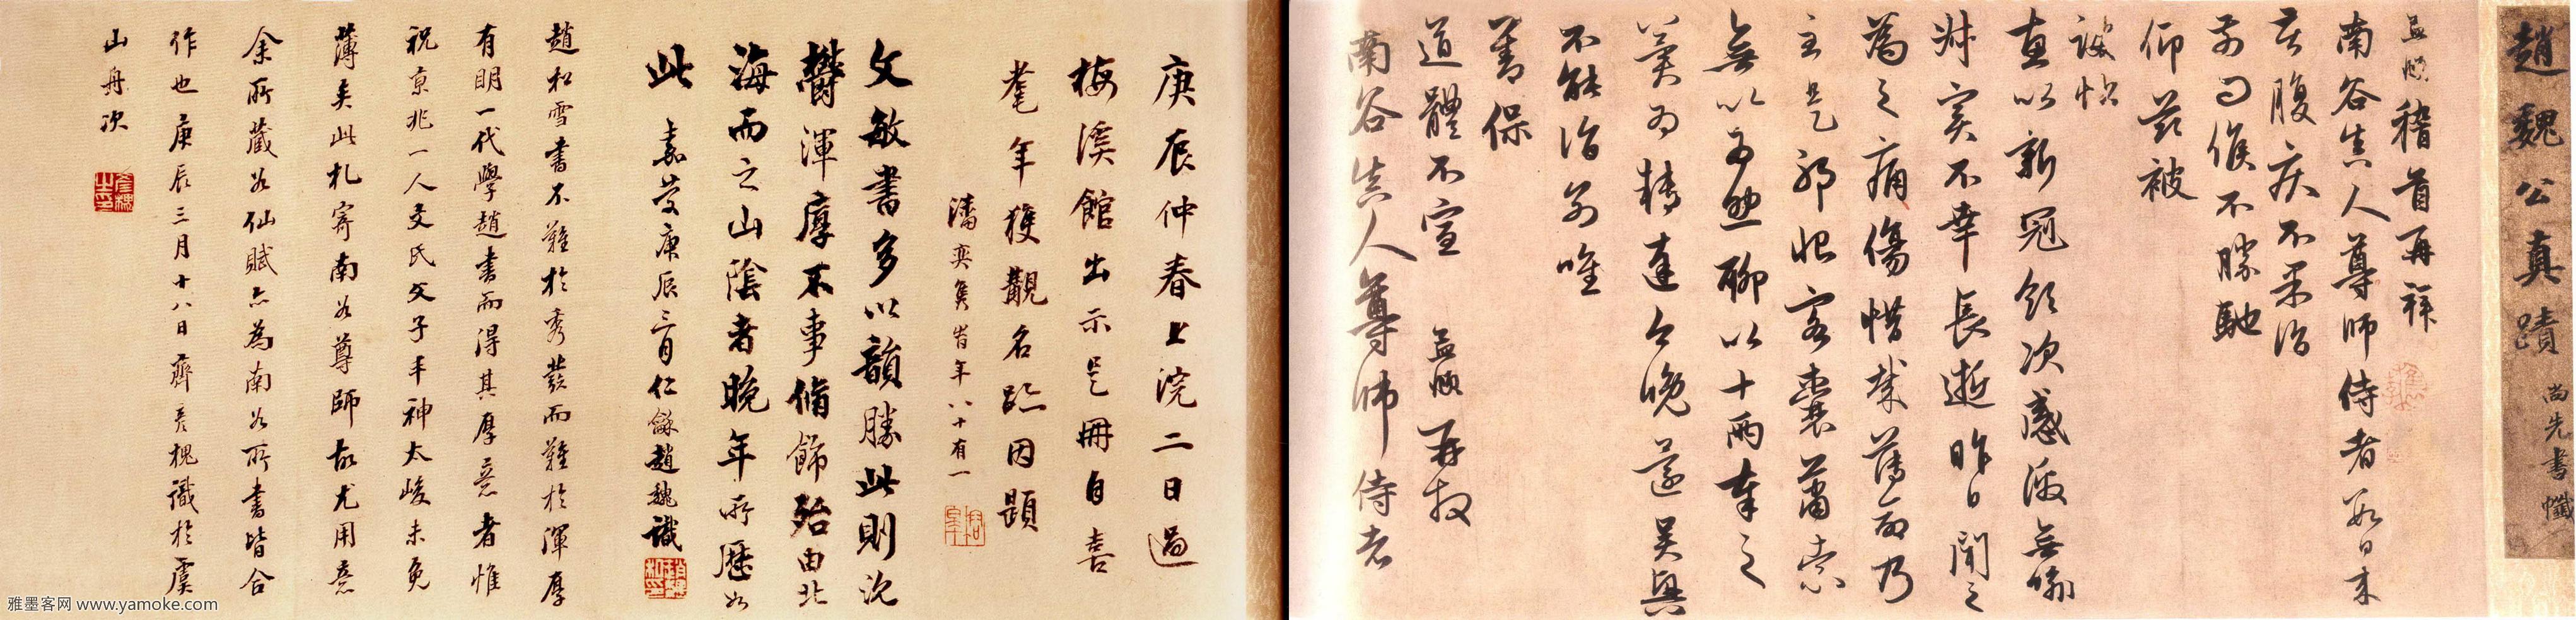 趙魏公真蹟
尚先書懺
孟頫稽首再拜
南谷真人尊師侍者數日来
苦腹疾不果詣
前問候不勝馳
仰茲被
誨帖
惠以新冠領次感激無喻
不幸長逝昨日聞之
為之痛傷惜哉薄命乃
主是耶收客囊蕭索
無以為慰聊以十兩奉之
冀為轉達今晚還吴興
不能詣別唯
善保
道體不宣 孟頫再拜
南谷真人尊師侍者
庚辰仲春上浣二日過
梅溪館出示是冊自喜
耄年獲觀名跡因題
潘奕雋時年八十有一
文敏書多以韻勝此則沈
鬱渾厚不事脩飾殆由北
海而之山陰者晚年所歷如
此 嘉慶庚辰二月仁龢趙魏識
趙松雪書不難於秀發而難於渾厚
有明一代學趙書而得其厚意者惟
祝京兆一人文氏父子丰神太峻未免
薄矣此札寄南谷尊師故尤用意
余所藏谷仙賦亦為南谷所書皆合
作也庚辰三月十八日齊彦槐識於虞
山舟次
雅墨客网 www.yamoke.com